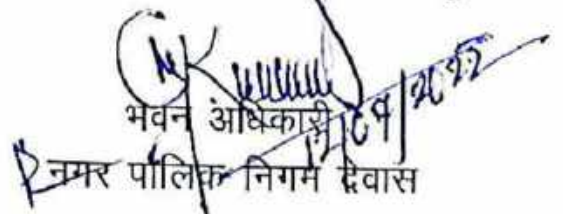 भवन अधिकारी
नगर पालिक निगम देवास